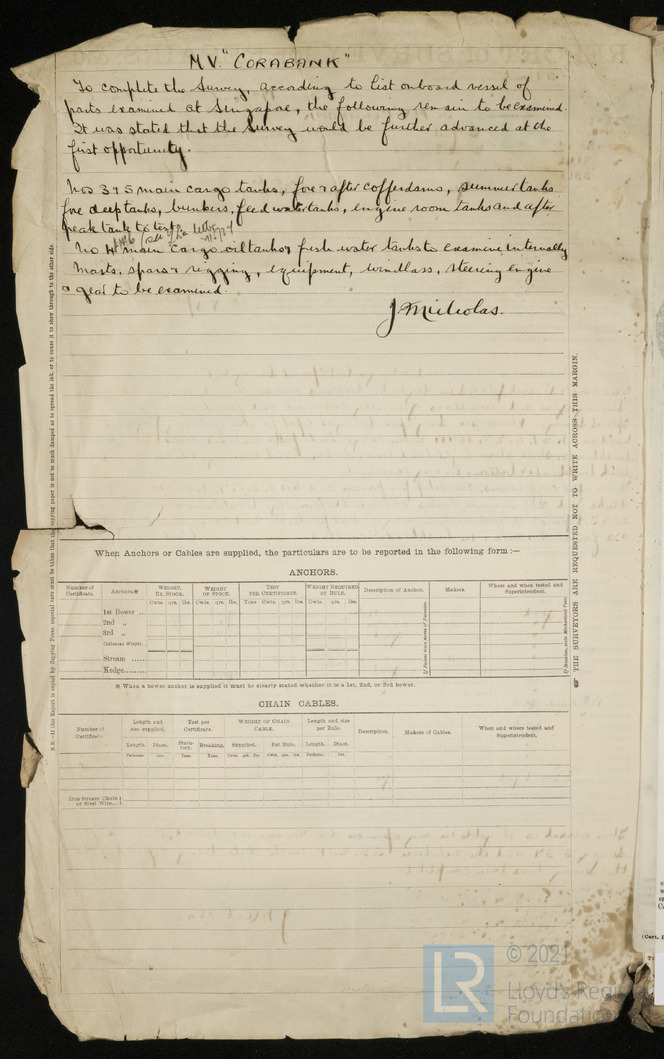 M.V. "CORABANK"
To complete the Survey, according to list onboard vessel of
parts examined at Singapore, the following remain to be examined.
It was stated that the Survey would be further advanced at the
first opportunity.
Nos 3 & 5 main cargo tanks, fore & after cofferdams, summer tanks
fore deep tanks, bunkers, feed water tanks, engine room tanks and after
peak tank to test
No 4 main cargo oil tanks & fresh water tanks to examine internally
Masts, spars & rigging, equipment, windlass, steering engine
& gear to be examined.
J. Nicholas.
N.B.—If this Report is copied by Copying Press, especial care must be taken that the copying paper is not so much damped as to spread the ink, or to cause it to show through to the other side.
☞ THE SURVEYORS ARE REQUESTED NOT TO WRITE ACROSS THIS MARGIN.
When Anchors or Cables are supplied, the particulars are to be reported in the following form :—
ANCHORS.
Number of Certificate. Anchors.※ WEIGHT, EX. STOCK. WEIGHT OF STOCK. TEST PER CERTIFICATE. WEIGHT REQUIRED BY RULE. Description of Anchor. Makers. Where and when tested and Superintendent.
Cwts. qrs. lbs. Cwts. qrs. lbs. Tons Cwts. qrs. lbs. Cwts. qrs. lbs.
1st Bower ...
2nd „
3rd „
Collective Weight.
Stream ......
Kedge.........
※ When a bower anchor is supplied it must be clearly stated whether it is a 1st, 2nd, or 3rd bower.
CHAIN CABLES.
Number of Certificate. Length and size supplied. Test per Certificate. WEIGHT OF CHAIN CABLE. Length and size per Rule. Description. Makers of Cables. When and where tested and Superintendent.
Length. Diam. Statutory. Breaking. Supplied. Per Rule. Length. Diam.
Fathoms. Ins. Tons. Tons. Cwts. qrs. lbs. Cwts. qrs. lbs. Fathoms. Ins.
Iron Stream Chain
or Steel Wire...
LR
© 2021
Lloyd's Register
Foundation